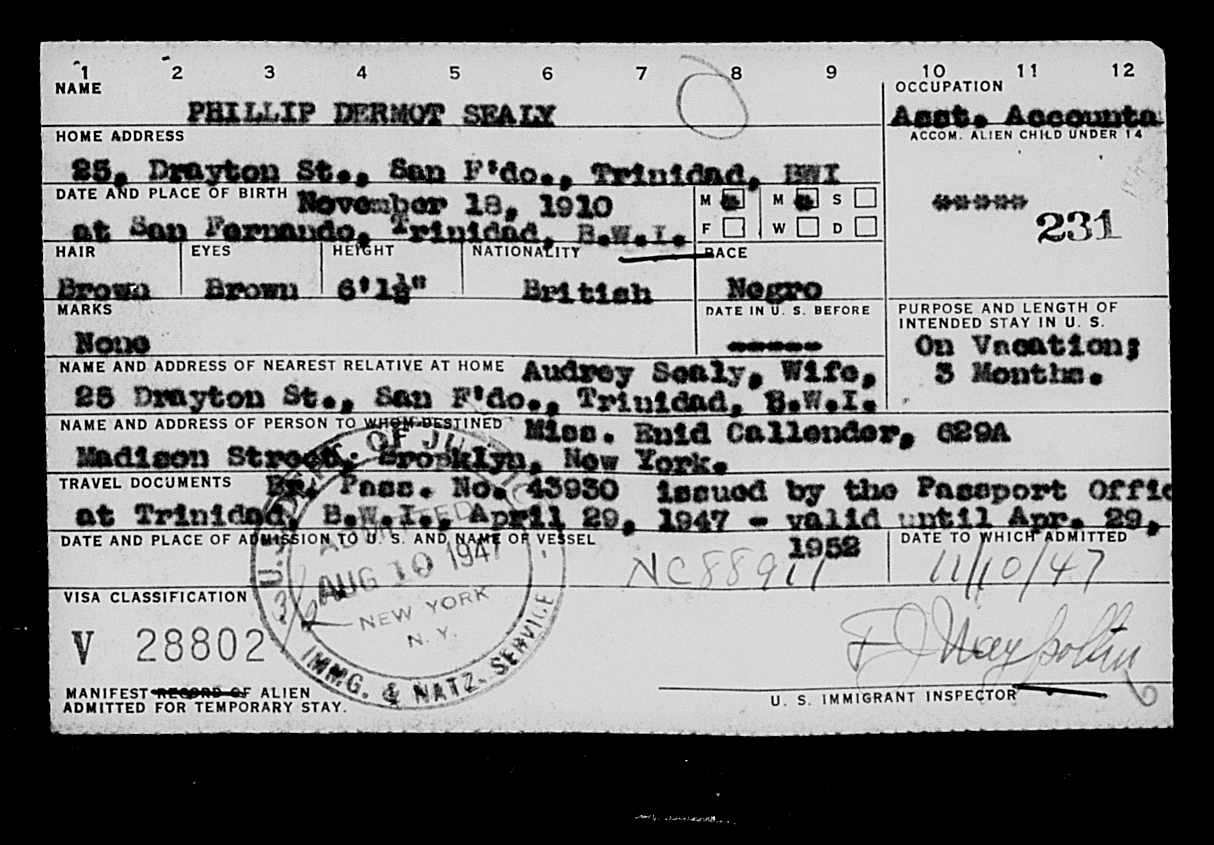 1 2 3 4 5 6 7 8 9 10 11 12
NAME
OCCUPATION
PHILLIP DERMOT SEALY
Asst. Accounta
HOME ADDRESS
ACCOM. ALIEN CHILD UNDER 14
25, Drayton St., San F'do., Trinidad, BWI
DATE AND PLACE OF BIRTH November 18, 1910
M M S
at San Fernando, Trinidad, B.W.I.
F W D
*****
231
HAIR EYES HEIGHT NATIONALITY RACE
Brown Brown 6'1½" British Negro
MARKS
DATE IN U. S. BEFORE
PURPOSE AND LENGTH OF
INTENDED STAY IN U. S.
None
On Vacation;
3 Months.
NAME AND ADDRESS OF NEAREST RELATIVE AT HOME Audrey Sealy, Wife,
25 Drayton St., San F'do., Trinidad, B.W.I.
NAME AND ADDRESS OF PERSON TO WHOM DESTINED Miss. Enid Callender, 629A
Madison Street, Brooklyn, New York.
TRAVEL DOCUMENTS Br. Pass. No. 43930 issued by the Passport Offic
at Trinidad, B.W.I., April 29, 1947 - valid until Apr. 29,
1952
DATE AND PLACE OF ADMISSION TO U. S. AND NAME OF VESSEL
DATE TO WHICH ADMITTED
NC88911
11/10/47
U.S. OF JUSTICE
ADMITTED
AUG 10 1947
NEW YORK
N. Y.
IMMG. & NATZ. SERVICE
VISA CLASSIFICATION
V 28802
MANIFEST RECORD OF ALIEN
ADMITTED FOR TEMPORARY STAY.
U. S. IMMIGRANT INSPECTOR